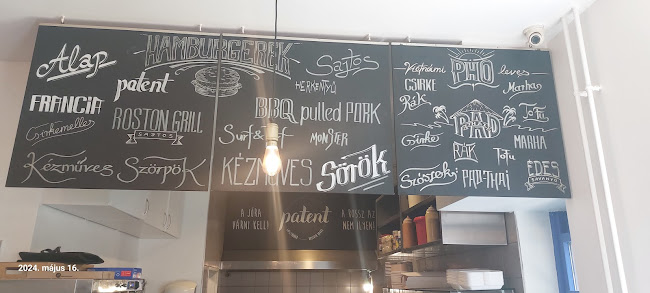 HAMBURGEREK
Alap
Sajtos
patent
HERKENTYŰ
FRANCIA
BBQ pulled PORK
Csirkemelles
ROSTON GRILL
SAJTOS
Surf&Turf
MONSTER
Kézműves Szörpök
KÉZMŰVES Sörök
Vietnámi PHO leves
CSIRKE
Marhan
Rák
TOFU
PAD THAI
Csirke
MARHA
RÁK
TOFU
Szószok
PAD-THAI
ÉDES
SAVANYÚ
A JÓRA
VÁRNI KELL!
patent
A ROSSZ AZ
NEM ILYEN!
2024. május 16.